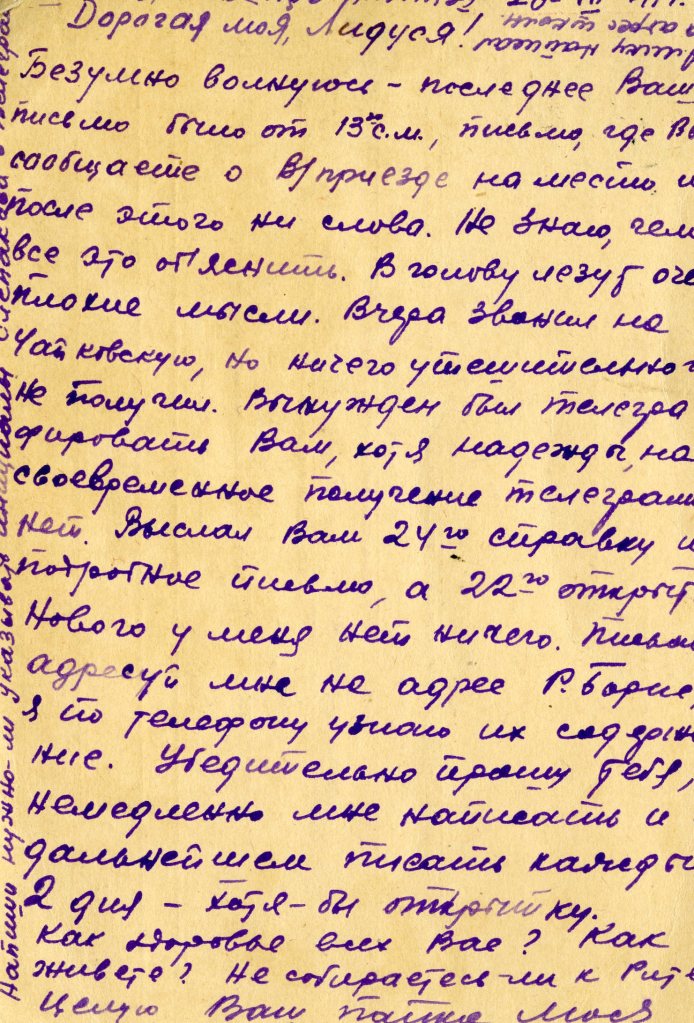 Дорогая моя, Лидуся!
Безумно волнуюсь – последнее Ваш
письмо было от 13го с.м., письмо, где В
сообщаете о В/приезде на место и
после этого ни слова. Не знаю, чем
все это об'яснить. В голову лезут оче
плохие мысли. Вчера звонил на
Чайковскую, но ничего утешительно
не получил. Вынужден был телегра
фировать Вам, хотя надежды, на
своевременное получение телеграм
нет. Выслал Вам 24го справку и
подробное письмо, а 22го открыт
Нового у меня нет ничего. Письм
адресуй мне на адрес Р. Борис
я по телефону узнаю их содержа
ние. Убедительно прошу тебя,
немедленно мне написать и
дальнейшем писать кажды
2 дня – хотя-бы открытку.
Как здоровье всех Вас? Как
живете? Не собираетесь-ли к Рит
Целую Ваш папка Мося
Напиши нужно-ли указывать инициалы